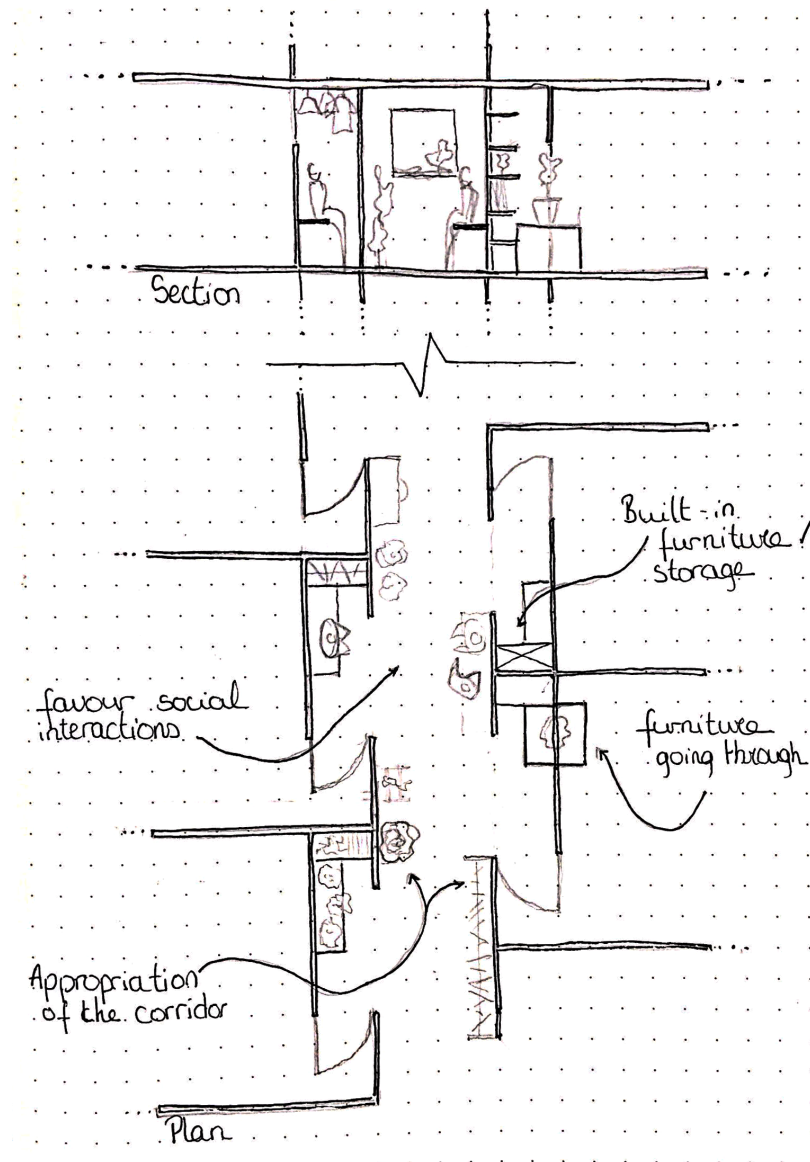 Section
Built-in
furniture/
storage
favour social
interactions
furniture
going through
Appropriation
of the corridor
Plan